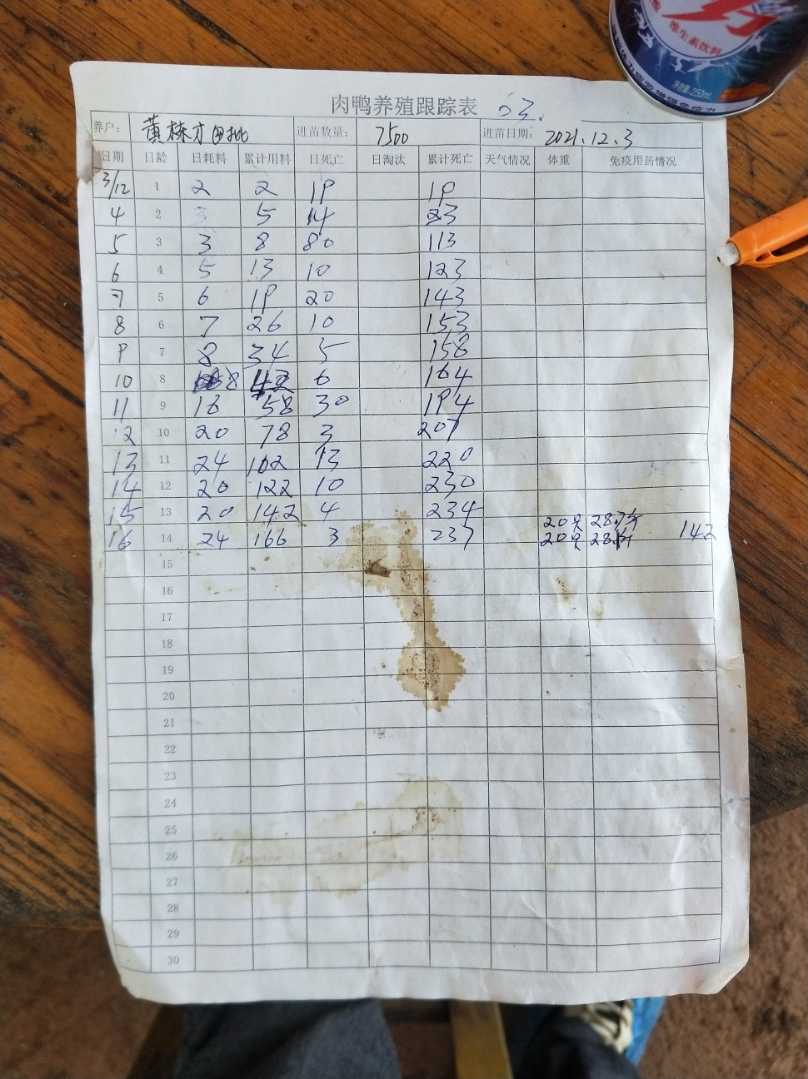 维生素饮料
净含量:250ml
肉鸭养殖跟踪表
养户: 黄栋才四批 进苗数量: 7500 进苗日期: 2021.12.3
日期 日龄 日耗料 累计用料 日死亡 日淘汰 累计死亡 天气情况 体重 免疫用药情况
3/12 1 2 2 19 19
4 2 3 5 14 33
5 3 3 8 80 113
6 4 5 13 10 123
7 5 6 19 20 143
8 6 7 26 10 153
9 7 8 34 5 158
10 8 8 42 6 164
11 9 16 58 30 194
12 10 20 78 3 207
13 11 24 102 13 220
14 12 20 122 10 230
15 13 20 142 4 234 20只
16 14 24 166 3 237 20只 142
15
16
17
18
19
20
21
22
23
24
25
26
27
28
29
30